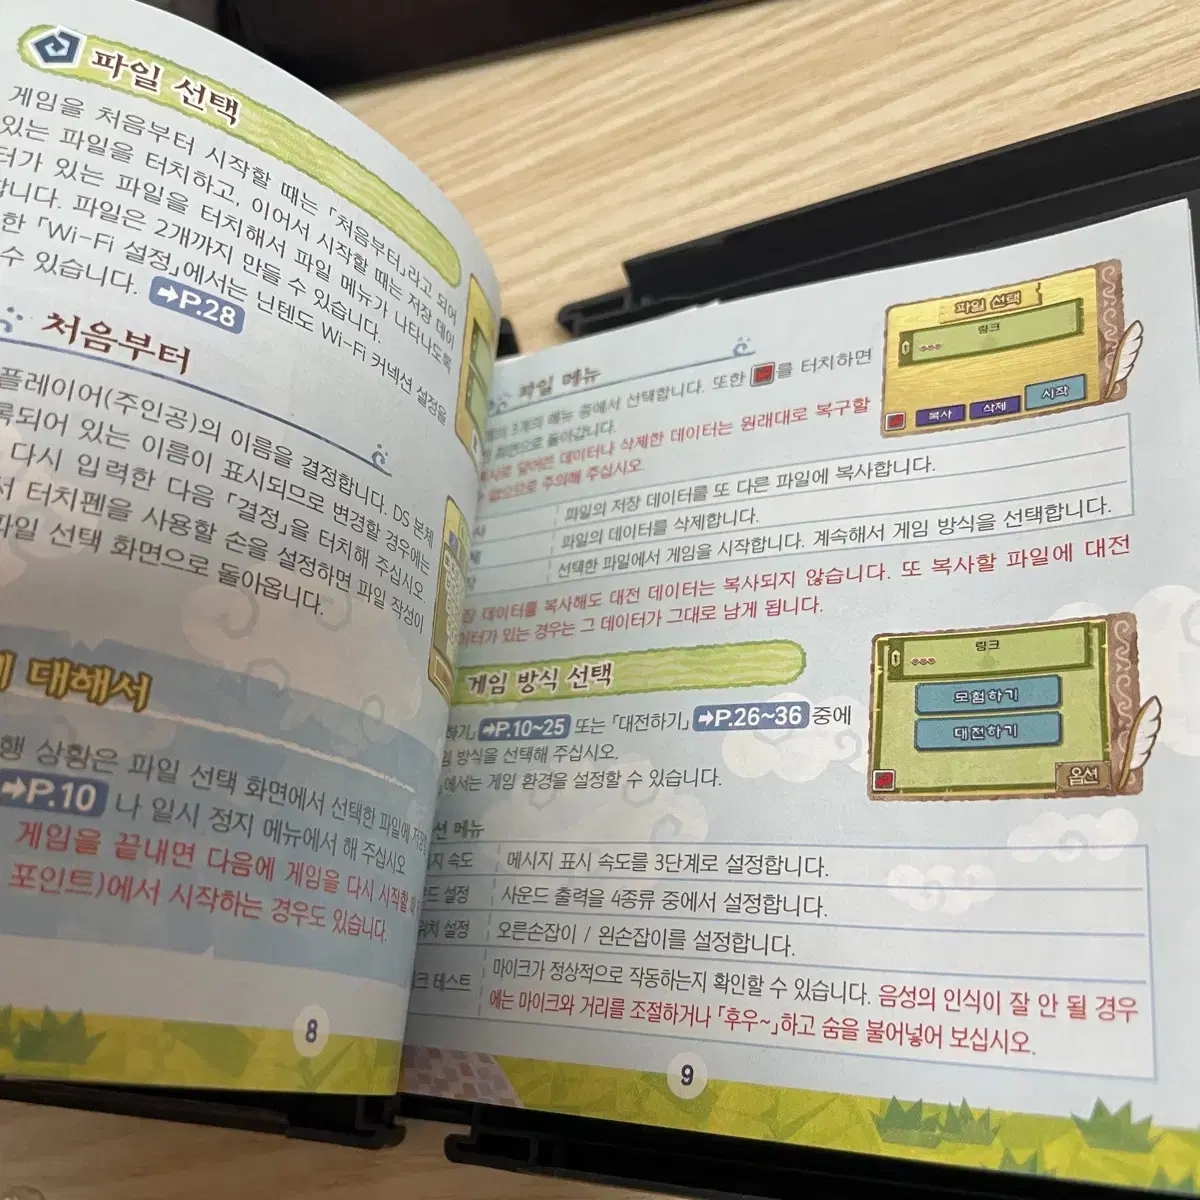 파일 선택
게임을 처음부터 시작할 때는 「처음부터」라고 되어
있는 파일을 터치하고, 이어서 시작할 때는 저장 데이
터가 있는 파일을 터치해서 파일 메뉴가 나타나도록
합니다. 파일은 2개까지 만들 수 있습니다.
한 「Wi-Fi 설정」에서는 닌텐도 Wi-Fi 커넥션 설정을
수 있습니다. ➡P.28
처음부터
플레이어(주인공)의 이름을 결정합니다. DS 본체
록되어 있는 이름이 표시되므로 변경할 경우에는
다시 입력한 다음 「결정」을 터치해 주십시오
서 터치펜을 사용할 손을 설정하면 파일 작성이
파일 선택 화면으로 돌아옵니다.
에 대해서
행 상황은 파일 선택 화면에서 선택한 파일에
➡P.10 나 일시 정지 메뉴에서 해 주십시오
게임을 끝내면 다음에 게임을 다시 시작할 때
포인트)에서 시작하는 경우도 있습니다.
8
파일 메뉴
3개의 메뉴 중에서 선택합니다. 또한 를 터치하면
화면으로 돌아갑니다.
데이터나 삭제한 데이터는 원래대로 복구할
없으므로 주의해 주십시오.
파일 선택
링크
복사
삭제
시작
사 파일의 저장 데이터를 또 다른 파일에 복사합니다.
제 파일의 데이터를 삭제합니다.
선택한 파일에서 게임을 시작합니다. 계속해서 게임 방식을 선택합니다.
장 데이터를 복사해도 대전 데이터는 복사되지 않습니다. 또 복사할 파일에 대전
이터가 있는 경우는 그 데이터가 그대로 남게 됩니다.
게임 방식 선택
하기」 ➡P.10~25 또는 「대전하기」 ➡P.26~36 중에
임 방식을 선택해 주십시오.
에서는 게임 환경을 설정할 수 있습니다.
링크
모험하기
대전하기
옵션
션 메뉴
지 속도 메시지 표시 속도를 3단계로 설정합니다.
드 설정 사운드 출력을 4종류 중에서 설정합니다.
위치 설정 오른손잡이 / 왼손잡이를 설정합니다.
크 테스트 마이크가 정상적으로 작동하는지 확인할 수 있습니다. 음성의 인식이 잘 안 될 경우
에는 마이크와 거리를 조절하거나 「후우~」하고 숨을 불어넣어 보십시오.
9